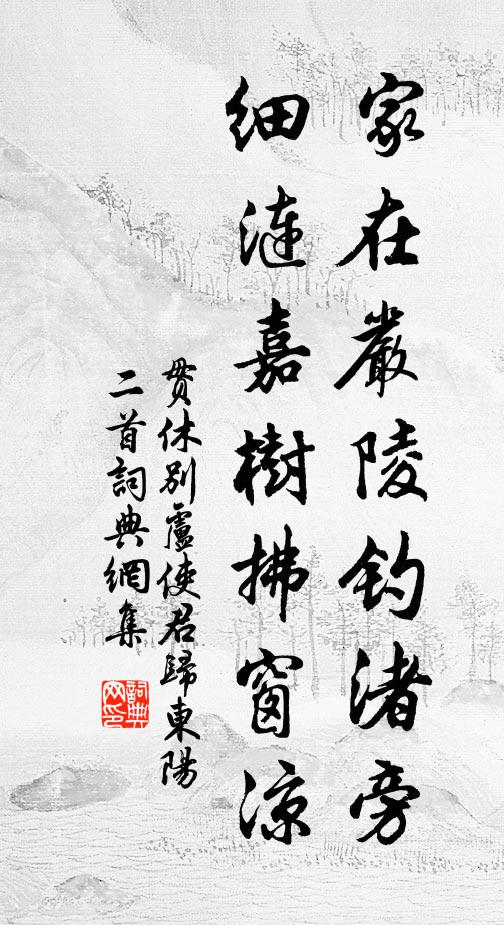 家在嚴陵钓渚旁
細漣嘉樹拂窗涼
贯休别盧使君歸東陽
二首詞典網集
詞典
网印